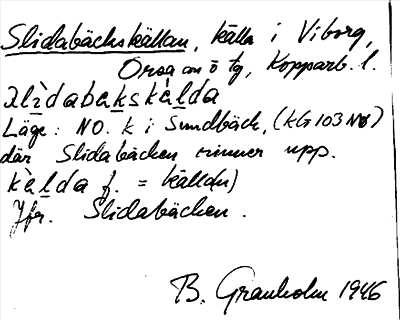 Slidabäckskällan, källa i Viborg,
Orsa om o tg, Kopparb. l.
slìdabakskǽlda
Läge: NO. k i Sundbäck, (KG103NO)
där Slidabäcken rinner upp.
kèlda f. = källan)
Jfr. Slidabäcken.
B. Granholm 1946